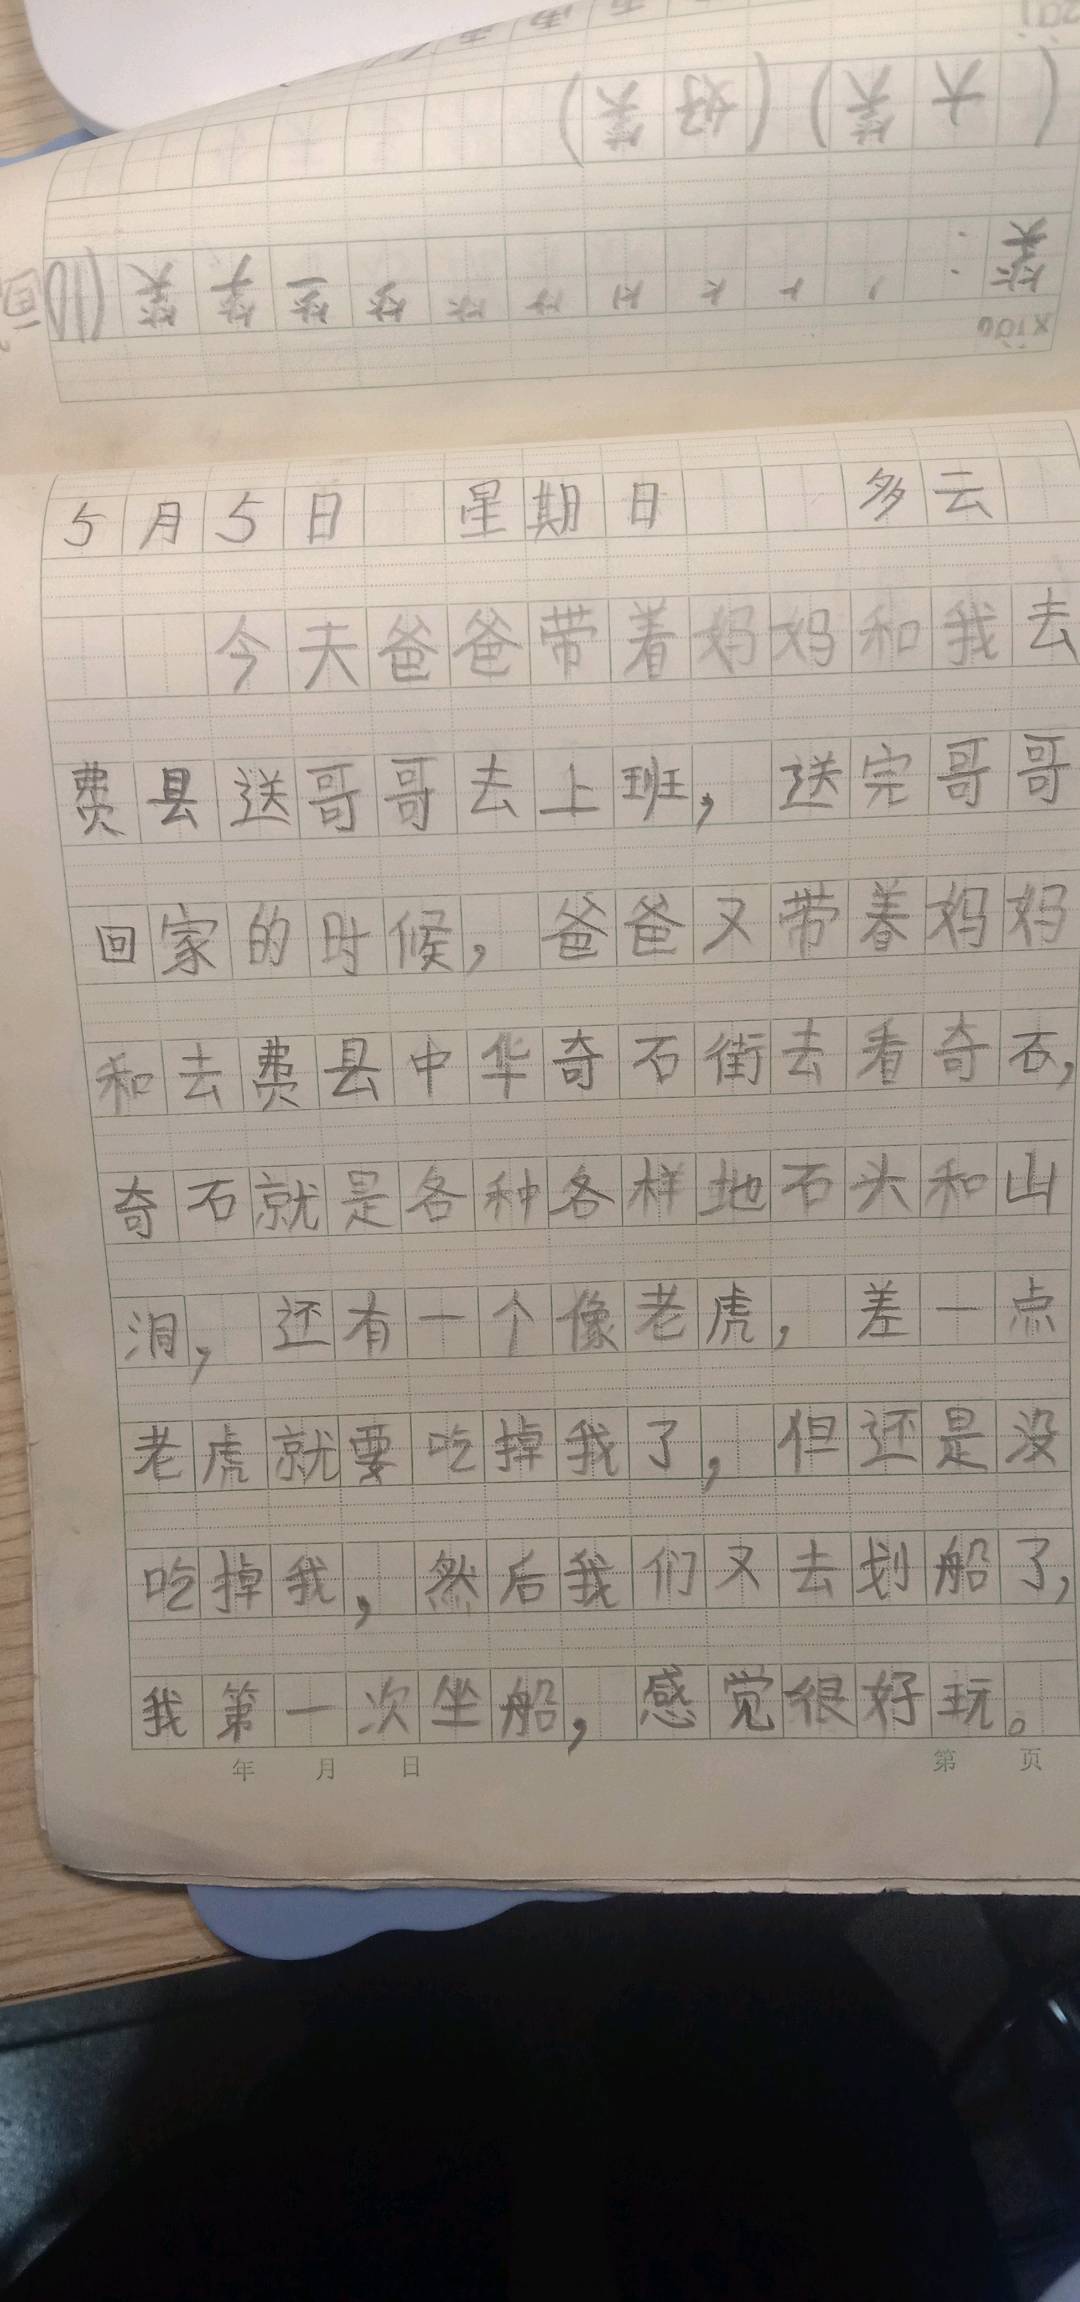 5月5日 星期日 多云
今天爸爸带着妈妈和我去
费县送哥哥去上班，送完哥哥
回家的时候，爸爸又带着妈妈
和去费县中华奇石街去看奇石，
奇石就是各种各样地石头和山
洞，还有一个像老虎，差一点
老虎就要吃掉我了，但还是没
吃掉我，然后我们又去划船了，
我第一次坐船，感觉很好玩。
年 月 日 第 页
xiào
笑：
(大笑)(好笑)